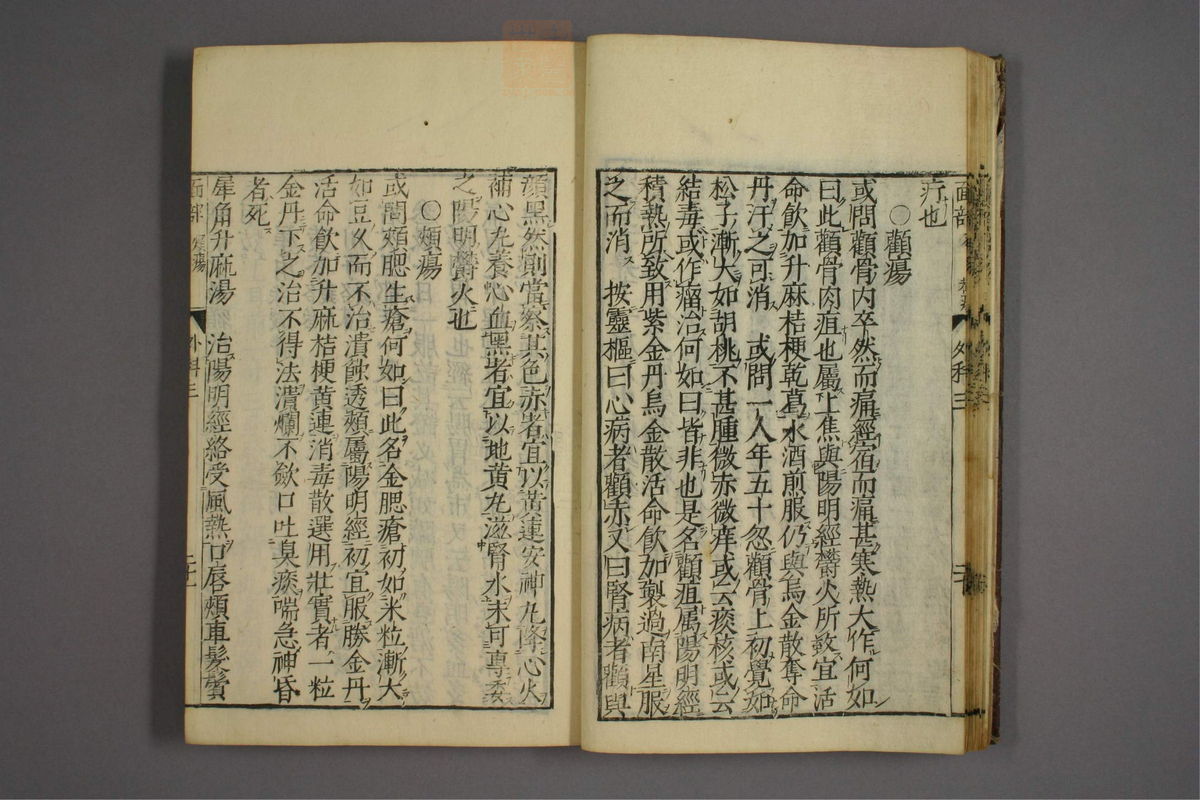 面部
外科三
疔也
○顴瘍
或問顴骨內卒然而痛經宿而痛甚寒熱大作何如
曰此顴骨肉疽也屬上焦與陽明經鬱火所致宜活
命飲加升麻桔梗乾葛水酒煎服仍與烏金散奪命
丹汗之可消　或問一人年五十忽顴骨上初覺如
松子漸大如胡桃不甚腫微赤微痒或云痰核或云
結毒或作瘤治何如曰皆非也是名顴疽属陽明經
積熱所致用紫金丹烏金散活命飲加製過南星服
之而消　按靈樞曰心病者顴赤又曰腎病者顴與
顏黑然則當察其色赤者宜以黃連安神丸降心火
補心丸養心血黑者宜以地黃丸滋腎水末可專委
之陽明鬱火也
○頰瘍
或問頰腮生瘡何如曰此名金腮瘡初如米粒漸大
如豆久而不治潰蝕透頰屬陽明經初宜服勝金丹
活命飲加升麻桔梗黃連消毒散選用壯實者一粒
金丹下之治不得法潰爛不歛口吐臭痰喘急神昏
者死
犀角升麻湯　治陽明經絡受風熱口唇頰車髮鬢
面部
外科三